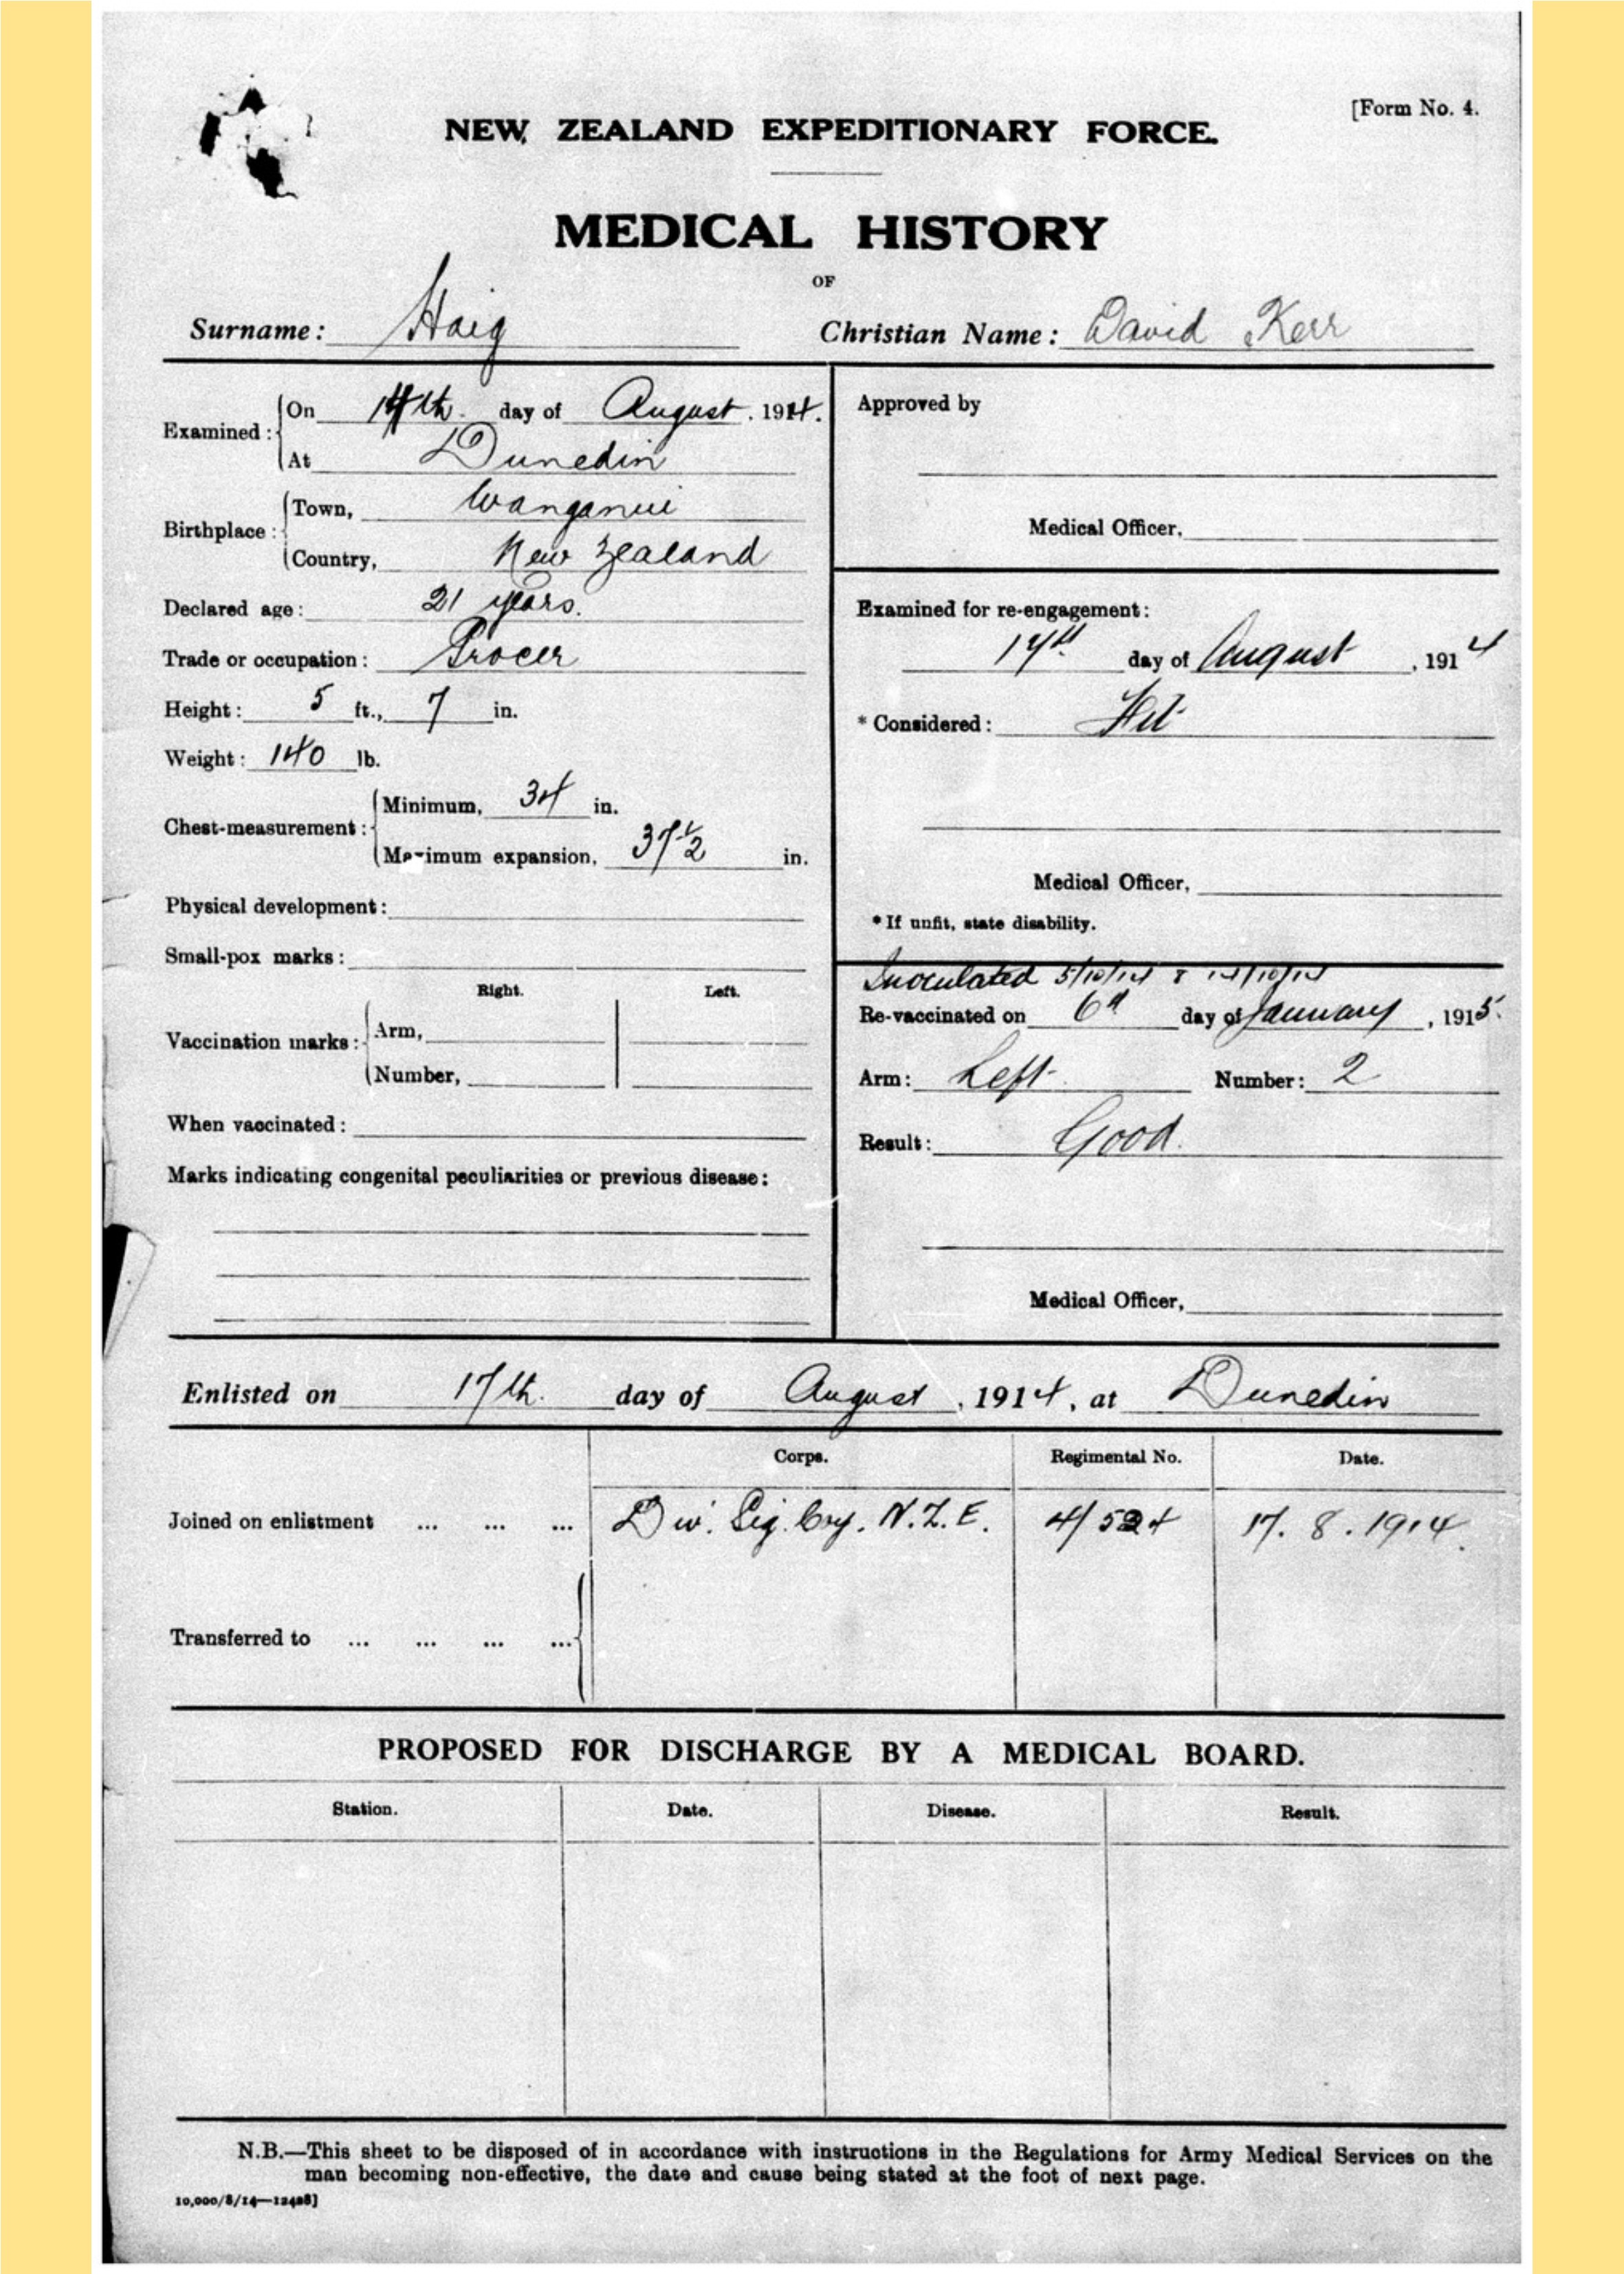 [Form No. 4.
NEW ZEALAND EXPEDITIONARY FORCE.
MEDICAL HISTORY
OF
Surname: Haig Christian Name: David Kerr
Examined: On day of August, 1914.
At Dunedin
Birthplace: Town, Wanganui
Country, New Zealand
Declared age: 21 years.
Trade or occupation: Grocer
Height: 5 ft., 7 in.
Weight: 140 lb.
Chest-measurement: Minimum, 34 in.
Maximum expansion, 37 1/2 in.
Physical development:
Small-pox marks:
Right. Left.
Vaccination marks: Arm,
Number,
When vaccinated:
Marks indicating congenital peculiarities or previous disease:
Approved by
Medical Officer,
Examined for re-engagement:
day of August, 1914
* Considered: Fit
Medical Officer,
* If unfit, state disability.
Inoculated 5/10/14 & 14/10/14
Re-vaccinated on 6th day of January, 1915.
Arm: Left Number: 2
Result: Good.
Medical Officer,
Enlisted on 17th. day of August, 1914, at Dunedin
Corps. Regimental No. Date.
Joined on enlistment ... ... ... Div. Sig. Coy. N.Z.E. 4/524 17.8.1914.
Transferred to ... ... ... ...
PROPOSED FOR DISCHARGE BY A MEDICAL BOARD.
Station. Date. Disease. Result.
N.B.—This sheet to be disposed of in accordance with instructions in the Regulations for Army Medical Services on the
man becoming non-effective, the date and cause being stated at the foot of next page.